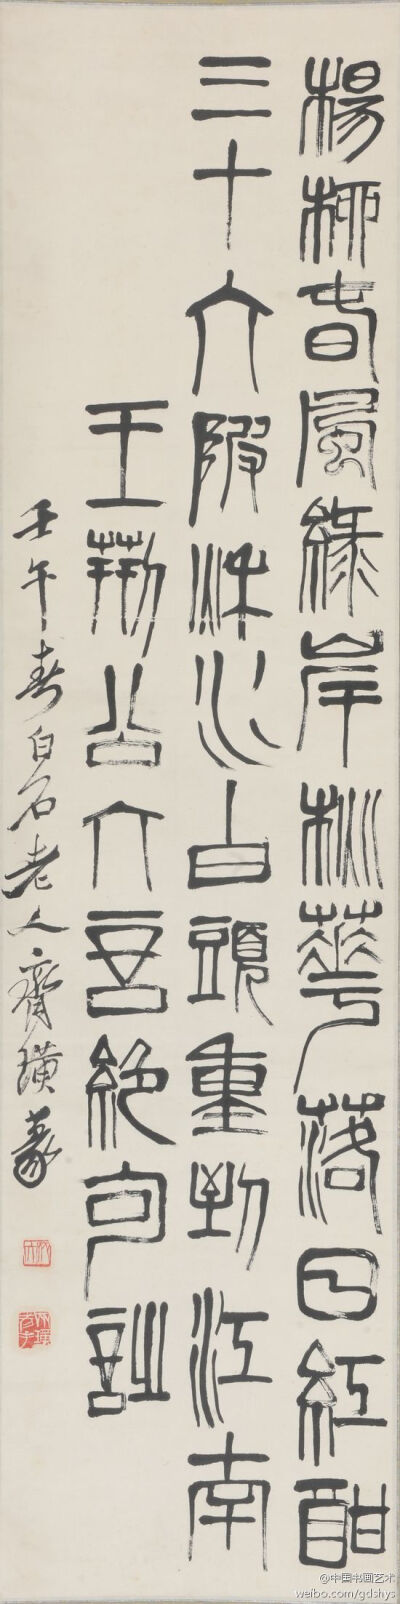 楊柳春風綠岸桃華落日紅酣
三十六陂流水白頭重到江南
王荊公六言絕句詩
壬午春白石老人齊璜篆
@中国书画艺术
weibo.com/gdshys